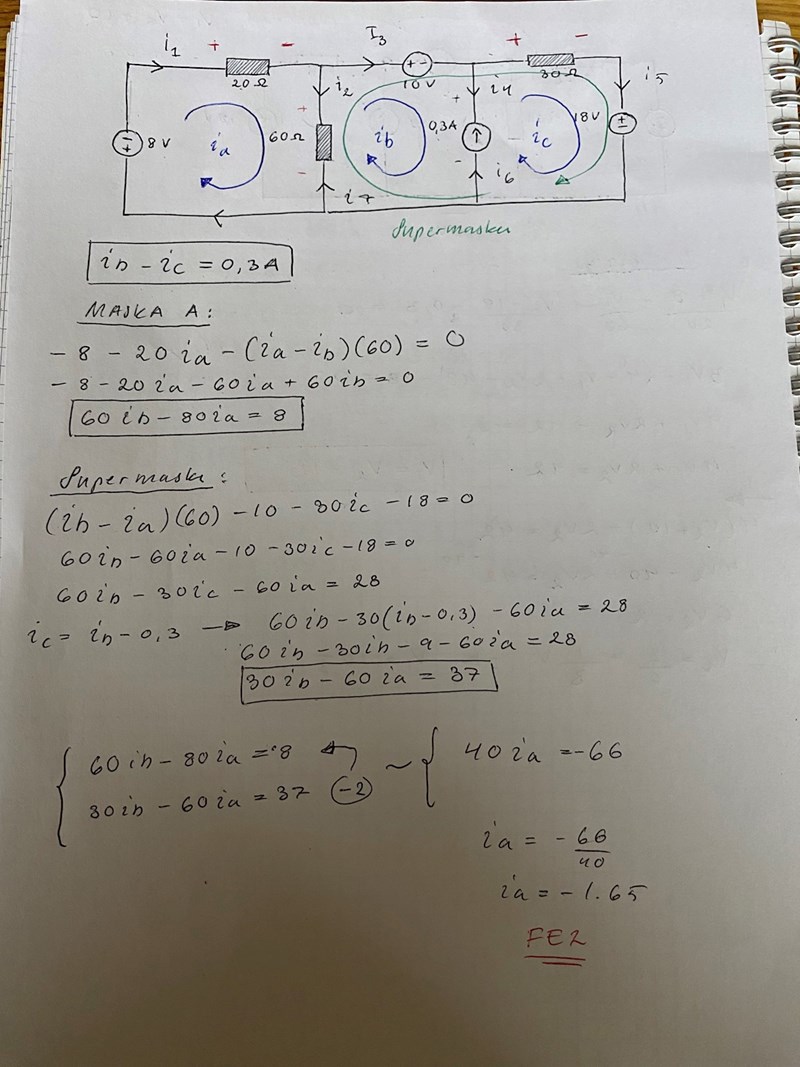 i1 + - I3 + -
20Ω i2 + - 10V i4 30Ω i5
- + 8V ia 60Ω + ib 0,3A + ic 18V + -
- i7 - i6
Supermaska
ib - ic = 0,3A
MASKA A:
- 8 - 20ia - (ia - ib)(60) = 0
- 8 - 20ia - 60ia + 60ib = 0
60ib - 80ia = 8
Supermaska:
(ib - ia)(60) - 10 - 30ic - 18 = 0
60ib - 60ia - 10 - 30ic - 18 = 0
60ib - 30ic - 60ia = 28
ic = ib - 0,3 → 60ib - 30(ib - 0,3) - 60ia = 28
60ib - 30ib - 9 - 60ia = 28
30ib - 60ia = 37
60ib - 80ia = 8 ~ 40ia = -66
30ib - 60ia = 37 (-2)
ia = - 66/40
ia = - 1.65
FEL